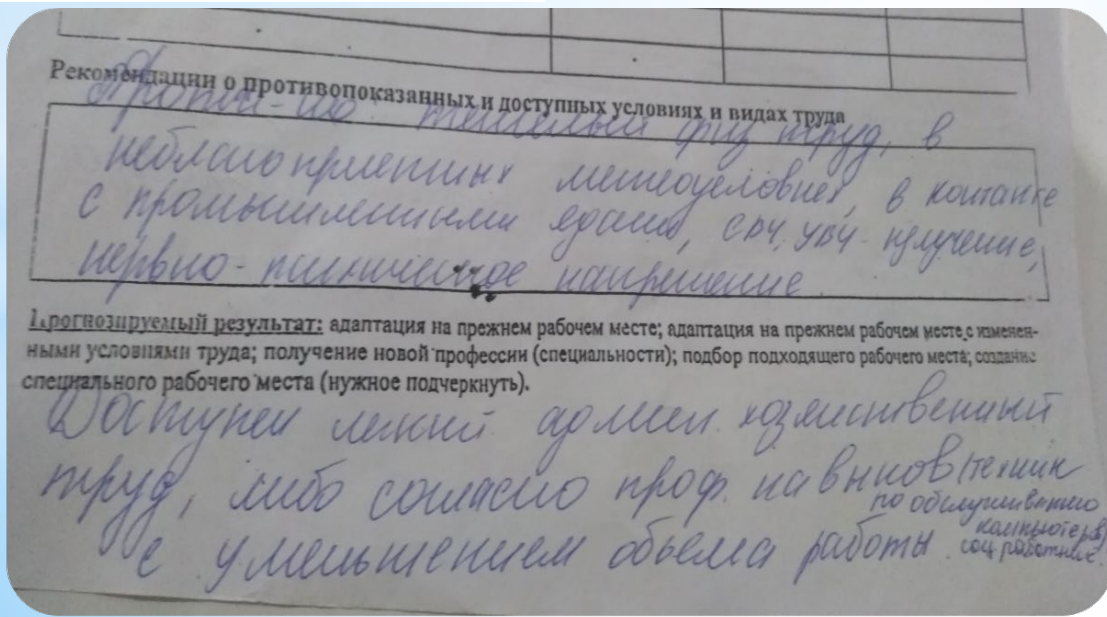 Рекомендации о противопоказанных и доступных условиях и видах труда
Против-но тяжелый физ труд, в
неблагоприятных метеоусловиях, в контакте
с промышленными ядами, СВЧ, УВЧ-излучение,
нервно-психическое напряжение
Прогнозируемый результат: адаптация на прежнем рабочем месте; адаптация на прежнем рабочем месте с изменен-
ными условиями труда; получение новой профессии (специальности); подбор подходящего рабочего места; создание
специального рабочего места (нужное подчеркнуть).
Доступен легкий админ. хозяйственный
труд, либо согласно проф. навыков (техник
по обслуживанию
компьютеров)
с уменьшением объема работы. соц. работник.